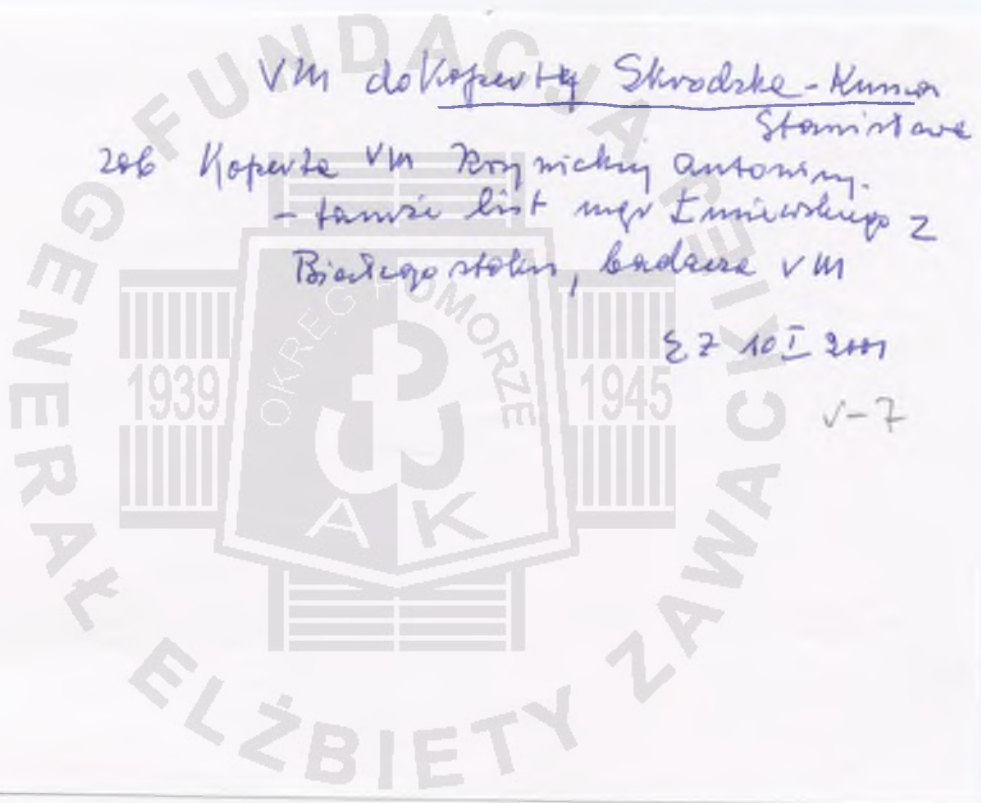 VM do Koperty Skrodzka-Kuman
Stanisława
zob Koperta VM Krzynickiej Antoniny.
- tamże list mgr Łuniewskiego z
Białegostoku, badacza VM
EZ 10 I 2001
V-7
FUNDACJA GENERAŁ ELŻBIETY ZAWACKIEJ
OKRĘG POMORZE
1939
1945
AK